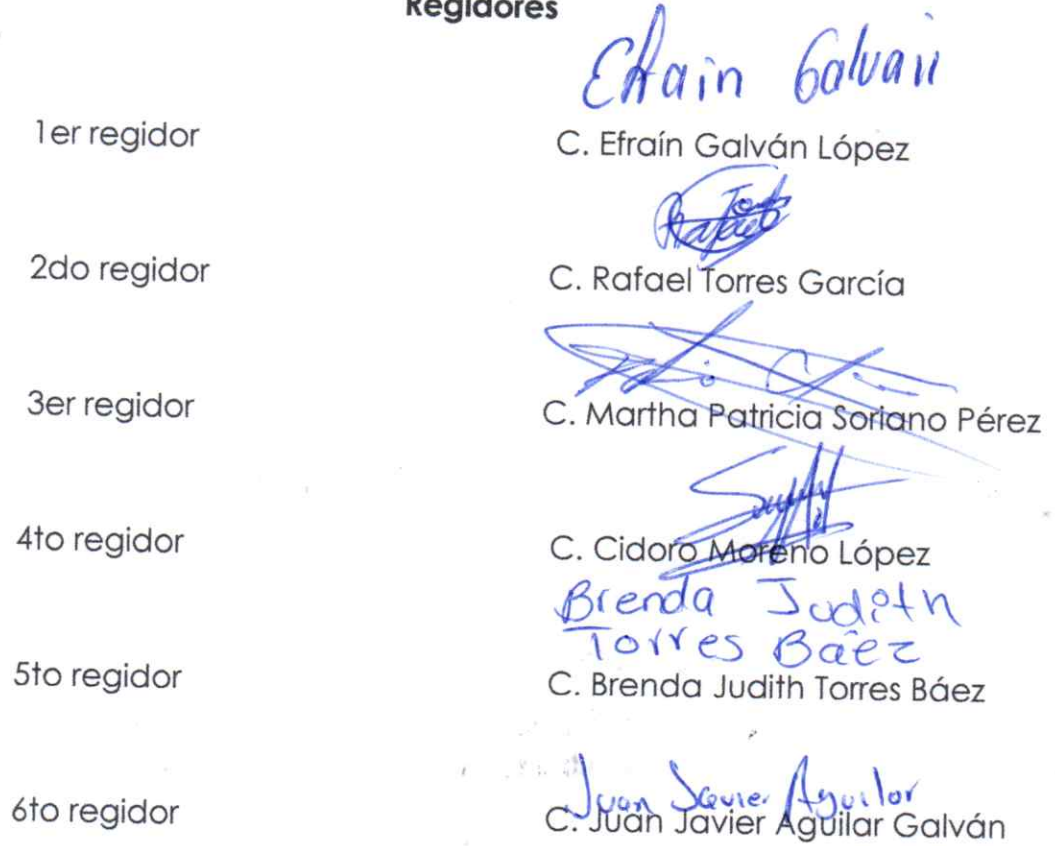 Regidores
Efrain Galvan
1er regidor C. Efraín Galván López
Rafael Torres
2do regidor C. Rafael Torres García
3er regidor C. Martha Patricia Soriano Pérez
4to regidor C. Cidoro Moreno López
Brenda Judith
Torres Báez
5to regidor C. Brenda Judith Torres Báez
Juan Javier Aguilar
6to regidor C. Juan Javier Aguilar Galván